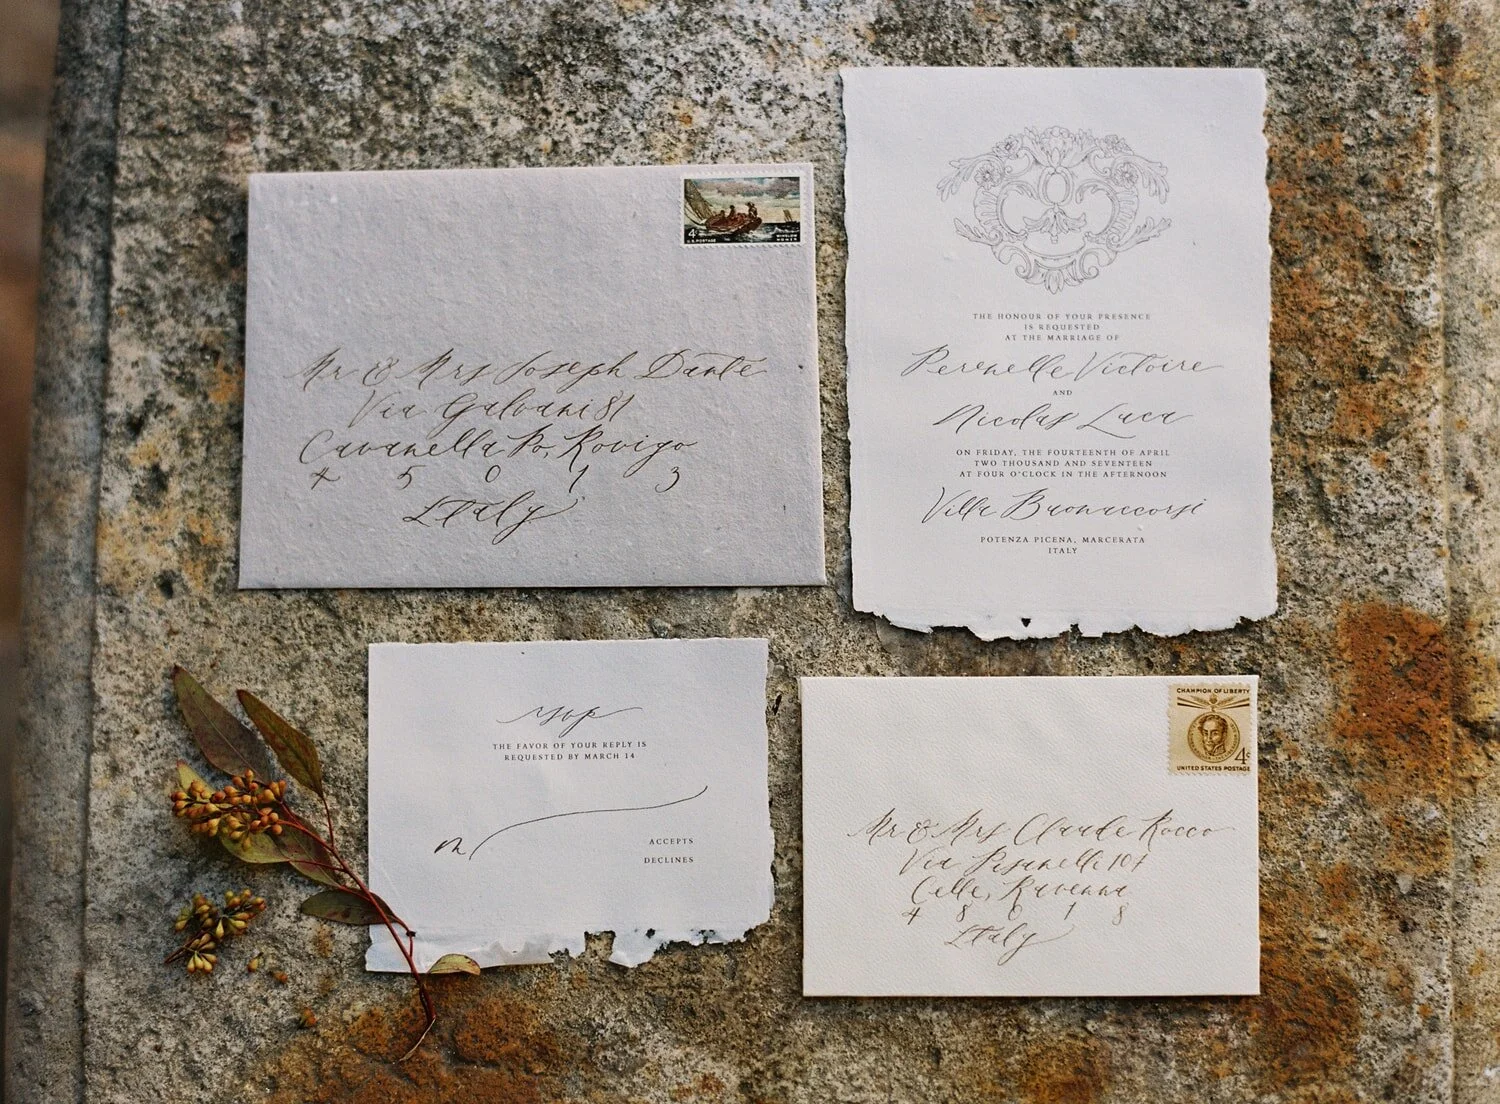 4¢
U.S. POSTAGE
WINSLOW
HOMER
Mr & Mrs Joseph Dante
Via Galvani 81
Cavanella Po, Rovigo
4 5 0 1 3
Italy
THE HONOUR OF YOUR PRESENCE
IS REQUESTED
AT THE MARRIAGE OF
Perenelle Victoire
AND
Nicolas Luca
ON FRIDAY, THE FOURTEENTH OF APRIL
TWO THOUSAND AND SEVENTEEN
AT FOUR O'CLOCK IN THE AFTERNOON
Villa Buonaccorsi
POTENZA PICENA, MARCERATA
ITALY
rsvp
THE FAVOR OF YOUR REPLY IS
REQUESTED BY MARCH 14
m
ACCEPTS
DECLINES
CHAMPION OF LIBERTY
4¢
UNITED STATES POSTAGE
Mr & Mrs Claude Rocco
Via Pisanelli 104
Celle, Ravenna
4 8 0 1 8
Italy